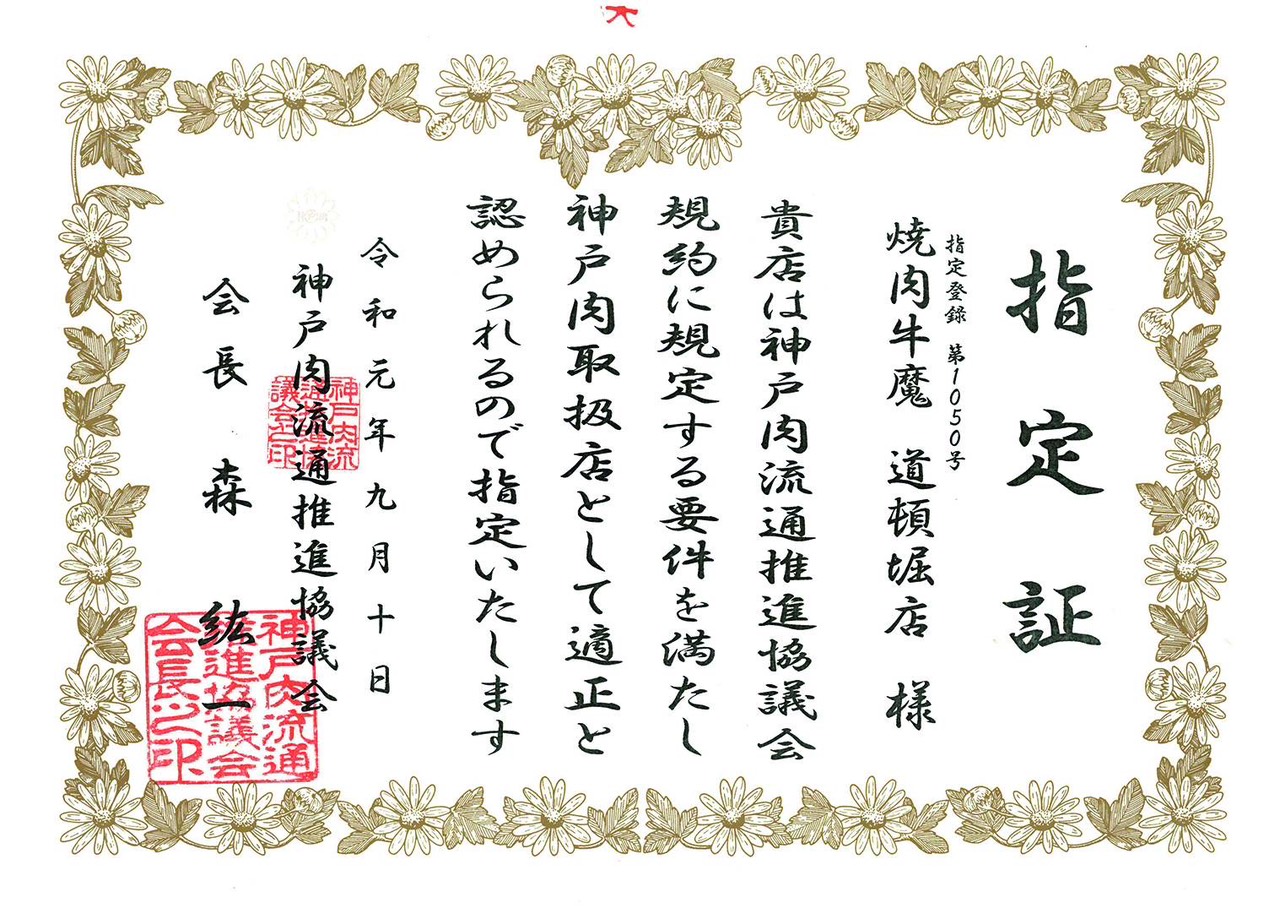 指定証
指定登録 第1050号
焼肉牛魔 道頓堀店 様
貴店は神戸肉流通推進協議会
規約に規定する要件を満たし
神戸肉取扱店として適正と
認められるので指定いたします
令和元年九月十日
神戸肉流通推進協議会
会長 森 紘一
神戸肉流
通推進協
議会之印
神戸肉流通
推進協議会
会長之印